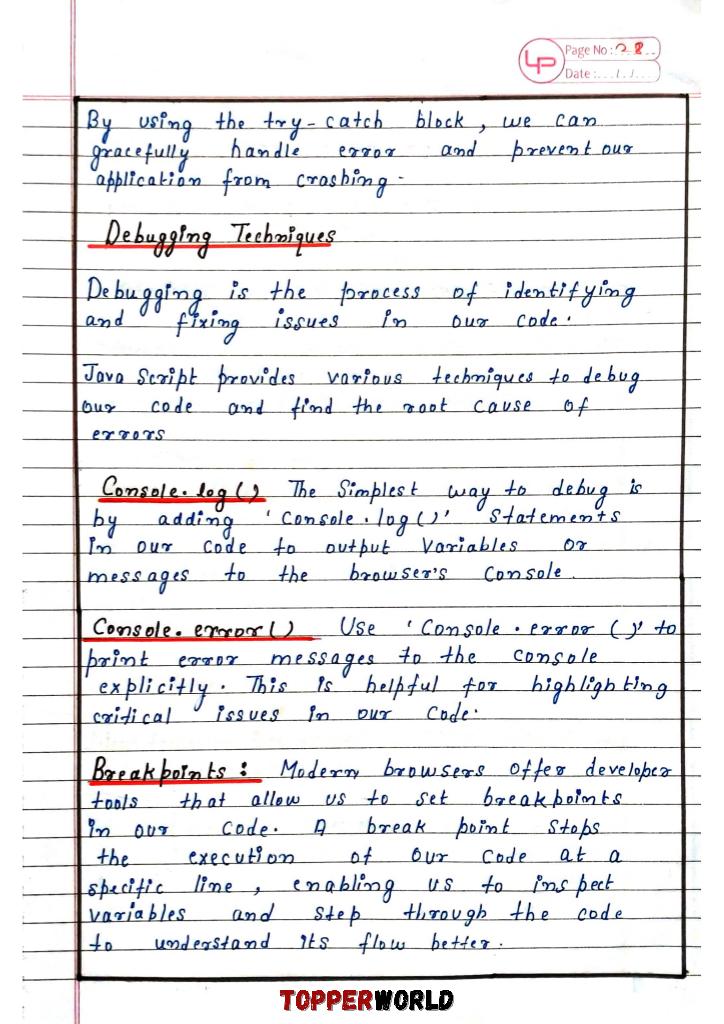 LP
Page No : 28
Date : / /
By using the try-catch block, we can
gracefully handle error and prevent our
application from crashing-
Debugging Techniques
Debugging is the process of identifying
and fixing issues in our code.
Java Script provides various techniques to debug
our code and find the root cause of
errors
Console.log() The Simplest way to debug is
by adding 'Console.log()' Statements
in our code to output variables or
messages to the browser's Console.
Console.error() Use 'Console.error()' to
print error messages to the console
explicitly. This is helpful for highlighting
critical issues in our Code.
Breakpoints: Modern browsers offer developer
tools that allow us to set breakpoints
in our code. A break point stops
the execution of our code at a
specific line, enabling us to inspect
variables and step through the code
to understand its flow better.
TOPPERWORLD